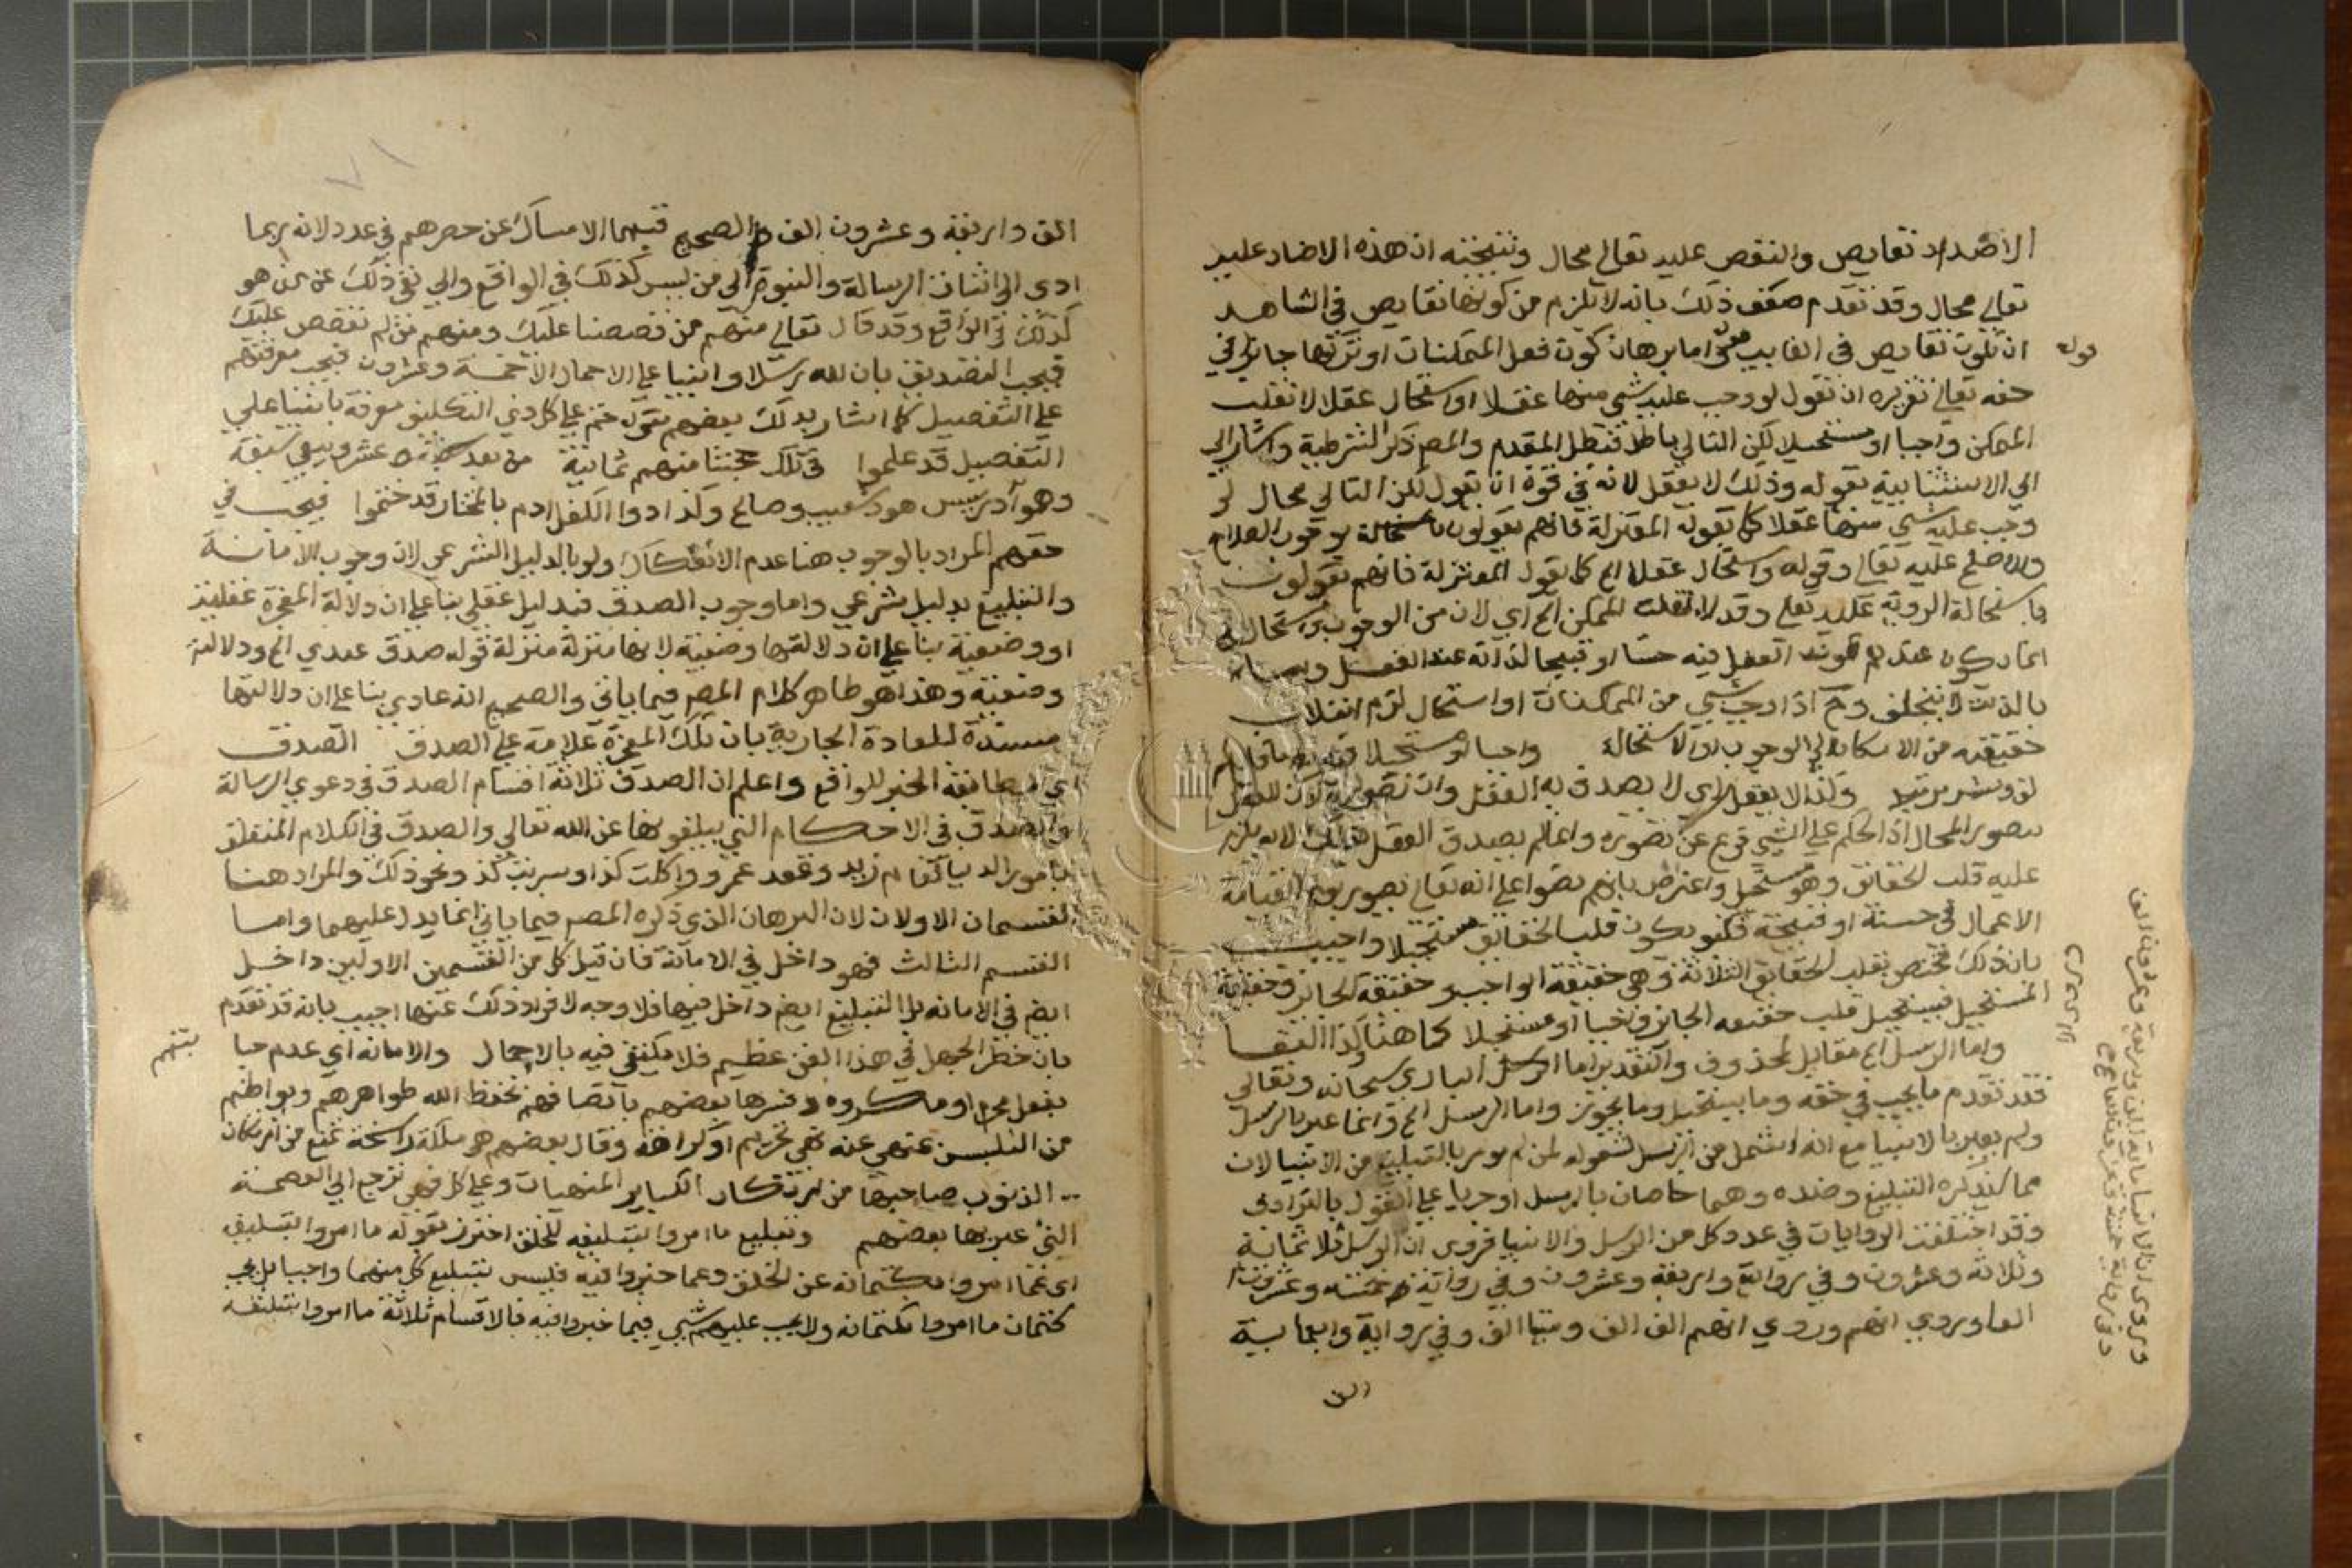 الاضداد نقايص والنقص عليه تعالي محال ونتيجته ان هذه الاضاد عليه
تعالي محال وقد تقدم ضعف ذلك بانه لا يلزم من كونها نقايص في الشاهد
ان تكون نقايص في الغايب واما برهان كون فعل الممكنات او تركها جايز في
قوله
حقه تعالي تقريره ان تقول لو وجب عليه شي منها عقلا او استحال عقلا لانقلب
الممكن واجبا او مستحيلا لكن التالي باطل فبطل المقدم والمص ذكر الشرطية واشار الي
الي الاستثنايية بقوله وذلك لا يعقل لانه في قوة ان يقول لكن التالي محال لو
وجب عليه شي منها عقلا كما تقوله المعتزلة فانهم يقولون الصلاح
والاصلح عليه تعالي وقوله واستحال عقلا الخ كما يقول المعتزلة فانهم يقولون
باستحالة الروية عليه تعالي وقد لانقلب الممكن الخ اي لان من الوجوب
انما يكون عندهم لكونه الفعل فيه حسنا او قبيحا لذاته عند العقل وما
بالذات لا يتخلف وح اذا وجب شي من الممكنات او استحال لزم انقلاب
حقيقته من الامكان الي الوجوب او الاستحالة واجبا او مستحيلا
لف ونشر مرتب وذلك لا يعقل اي لا يصدق به العقل وان تصوره لان للعقل
تصور المحال اذ الحكم علي الشي فرع عن تصوره وانما لم يصدق العقل بذلك لانه يلزم
عليه قلب الحقائق وهو مستحيل واعترض بانهم نصوا علي انه تعالي يصور يوم القيامة
الاعمال في حسنة او قبيحة فكيف يكون قلب الحقايق مستحيلا واجيب
بان ذلك مختص بقلب الحقايق الثلاثة وهي حقيقة الواجب وحقيقة الجايز وحقيقة
المستحيل فيستحيل قلب حقيقه الجايز واجبا او مستحيلا كما هنا
واما الرسل الخ مقابل لمحذوف والتقدير اما الباري سبحانه وتعالي
فقد تقدم ما يجب في حقه وما يستحيل وما يجوز واما الرسل الخ وانما عبر بالرسل
ولم يعبر بالانبيا مع انه اشمل من الرسل لشموله لمن لم يومر بالتبليغ من الانبيا لان
مما يذكره التبليغ وضده وهما خاصان بالرسل او جريا علي القول بالترادف
وقد اختلفت الروايات في عدد كل من الرسل والانبيا فروي ان الرسل ثلاثمائة
وثلاثه وعشرون وفي رواية واربعة وعشرون وفي رواية خمسة وعشرون
الف وروي انهم الف الف وميتا الف وفي رواية واربعماية
الف
الف واربعة وعشرون الف والصحيح فيهما الامساك عن حصرهم في عدد لانه ربما
ادي الي اثبات الرسالة والنبوة الي من ليس كذلك في الواقع والي نفي ذلك عن من هو
كذلك في الواقع وقد قال تعالي منهم من قصصنا عليك ومنهم من لم نقصص عليك
فيجب التصديق بان لله رسلا وانبيا علي الاجمال الا خمسة وعشرون فيجب معرفتهم
علي التفصيل كما اشار بذلك بعضهم بقوله حتم علي كل ذي التكليف معرفة بانبيا علي
التفصيل قد علموا في تلك حجتنا منهم ثمانية من بعد عشر ويبقي سبعة
وهو ادريس هود شعيب وصالح وكذا ذوا الكفل ادم بالمختار قد ختموا فيجب في
حقهم المراد بالوجوب هنا عدم الانفكاك ولو بالدليل الشرعي لان وجوب الامانة
والتبليغ بدليل شرعي واما وجوب الصدق فبدليل عقلي بنا علي ان دلالة المعجزة عقلية
او وضعية بنا علي ان دلالتها وضعية لانها منزلة منزلة قوله صدق عبدي الخ ودلالته
وضعية وهذا هو ظاهر كلام المص فيما ياتي والصحيح انه عادي بنا علي ان دلالتها
مستندة للعادة الجارية بان تلك المعجزة علامة علي الصدق الصدق
اي مطابقة الخبر للواقع واعلم ان الصدق ثلاثة اقسام الصدق في دعوي الرسالة
والصدق في الاحكام التي يبلغونها عن الله تعالي والصدق في الكلام المتعلق
بامور الدنيا كقام زيد وقعد عمرو واكلت كذا وشربت كذا ونحو ذلك والمراد هنا
القسمان الاولان لان البرهان الذي ذكره المص فيما ياتي انما يدل عليهما واما
القسم الثالث فهو داخل في الامانة فان قيل كل من القسمين الاولين داخل
ايض في الامانه بل التبليغ ايض داخل فيها فلا وجه لافراد ذلك عنها اجيب بانه قد تقدم
بان خطر الجهل في هذا الفن عظيم فلا يكتفي فيه بالاجمال والامانه اي عدم
بفعل محرم او مكروه وفسرها بعضهم باتصافهم بحفظ الله ظواهرهم وبواطنهم
من التلبس بمنهي عنه نهي تحريم او كراهة وقال بعضهم هي ملكة راسخة تمنع من ارتكاب
الذنوب صاحبها من ارتكاب الكباير المنهيات وعلي كل فهي ترجع الي العصمة
التي عبر بها بعضهم وتبليغ ما امروا بتبليغه للخلق احترز بقوله ما امروا بتبليغه
اي عما امروا بكتمانه عن الخلق وعما خيروا فيه فليس تبليغ كل منهما واجبا بل يجب
كتمان ما امروا بكتمانه ولا يجب عليهم شي فيما خيروا فيه فالاقسام ثلاثة ما امروا بتبليغه